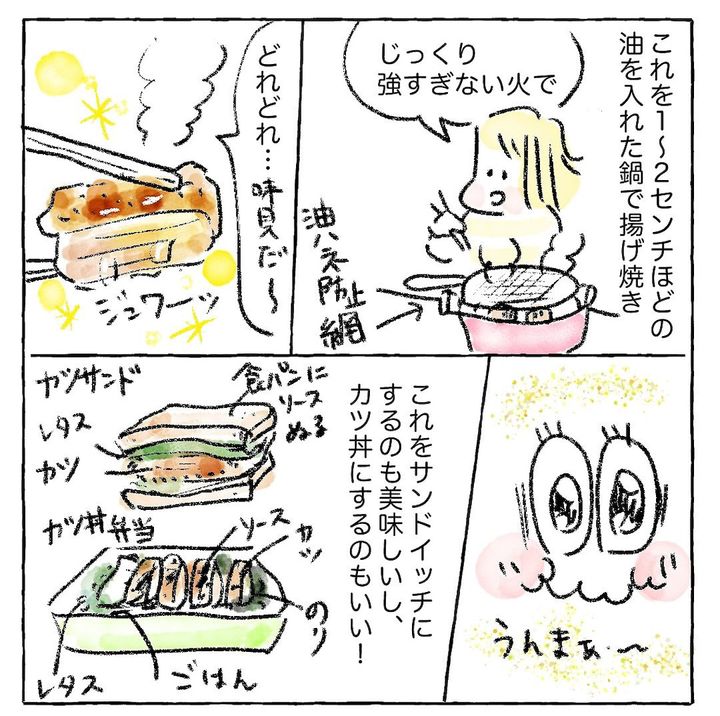 これを1〜2センチほどの
油を入れた鍋で揚げ焼き
じっくり
強すぎない火で
油ハネ防止網
どれどれ…味見だ〜
ジュワーッ
うんまぁ〜
これをサンドイッチに
するのも美味しいし、
カツ丼にするのもいい!
カツサンド
食パンに
ソース
ぬる
レタス
カツ
カツ丼弁当
ソース
カツ
のり
ごはん
レタス